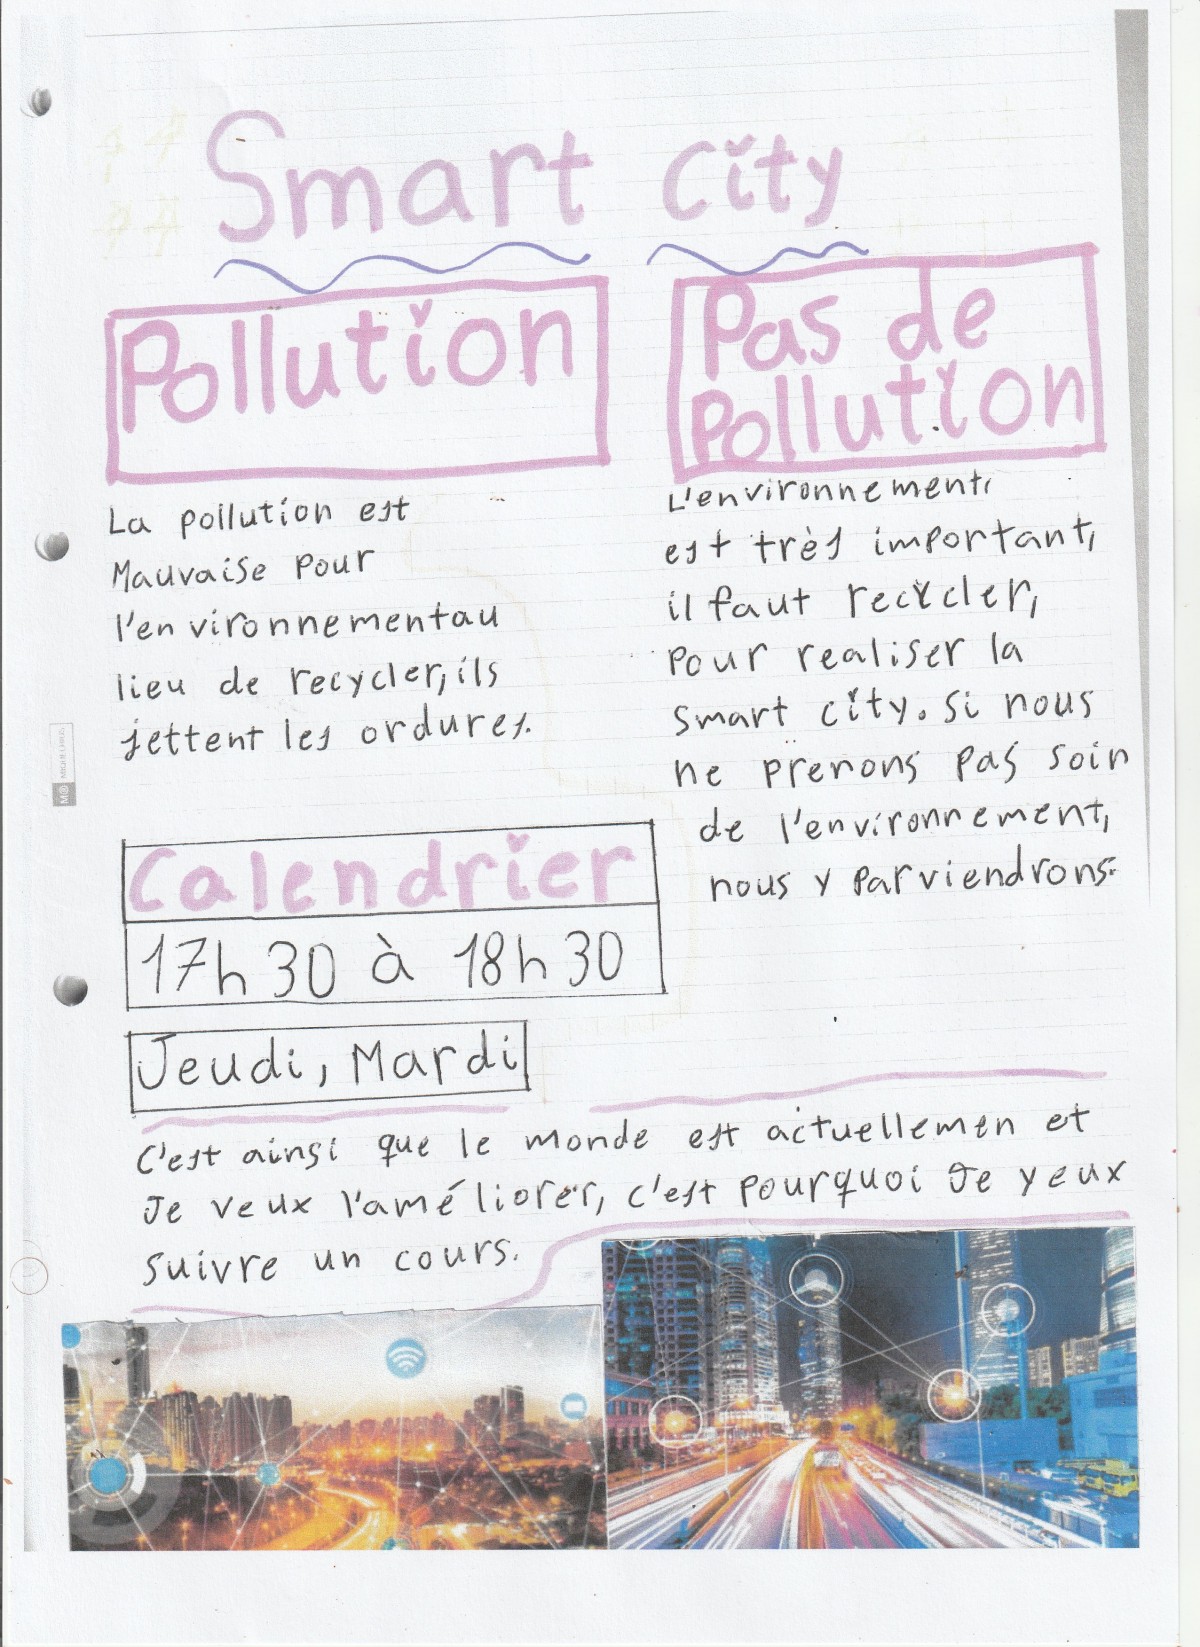 Smart City
Pollution
La pollution est
Mauvaise pour
l'environnementau
lieu de recycler, ils
jettent les ordures.
Pas de
Pollution
L'environnement,
est très important,
il faut recycler,
Pour realiser la
Smart city. Si nous
ne prenons pas soin
de l'environnement,
nous y parviendrons.
Calendrier
17h 30 à 18h 30
Jeudi, Mardi
C'est ainsi que le monde est actuellemen et
Je veux l'améliorer, c'est pourquoi Je yeux
suivre un cours.